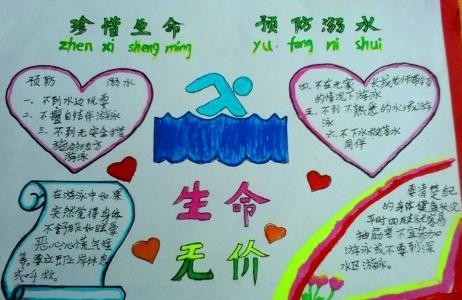 珍惜生命
预防溺水
zhen xi sheng ming
yu fang ni shui
预防 溺水
一、不到水边玩耍
二、不擅自结伴游泳
三、不到无安全措
施的地方
游泳
四、不在无家长或老师带领
的情况下游泳
五、不到不熟悉的水域游
泳
六、不下水救落水
同伴
生命
无价
在游泳中如果
突然觉得身体
不舒服如眩晕
恶心心慌气短
等要立即上岸休息
或呼救
要清楚自己
的身体健康状况
平时四肢就容易
抽筋者不宜参加
游泳或不要到深
水区游泳。